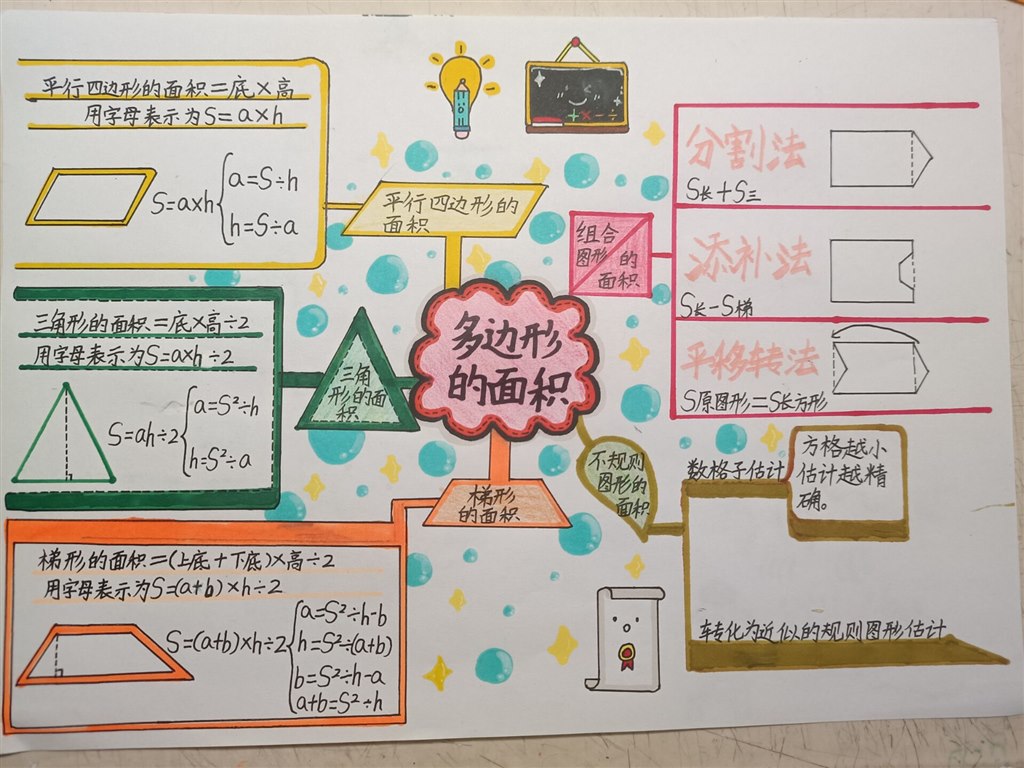 平行四边形的面积=底×高
用字母表示为S=a×h
S=a×h
a=S÷h
h=S÷a
平行四边形的
面积
三角形的面积=底×高÷2
用字母表示为S=a×h÷2
S=ah÷2
a=S²÷h
h=S²÷a
三角
形的面
积
多边形
的面积
梯形
的面积
梯形的面积=(上底+下底)×高÷2
用字母表示为S=(a+b)×h÷2
S=(a+b)×h÷2
a=S²÷h-b
h=S²÷(a+b)
b=S²÷h-a
a+b=S²÷h
组合
图形的
面积
分割法
S长+S三
添补法
S长-S梯
平移转法
S原图形=S长方形
不规则
图形的
面积
数格子估计
方格越小
估计越精
确。
转化为近似的规则图形估计